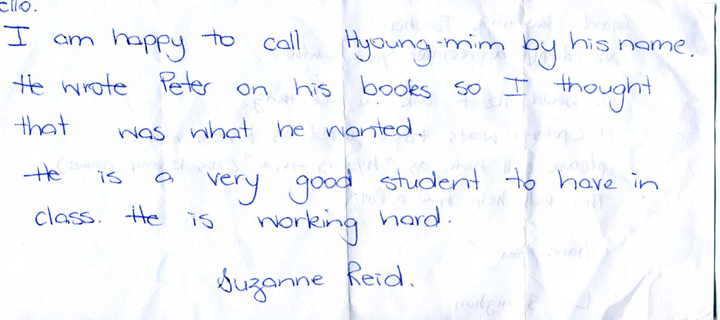 ello.
I am happy to call Hyoung-mim by his name.
He wrote Peter on his books so I thought
that was what he wanted.
He is a very good student to have in
class. He is working hard.
Suzanne Reid.